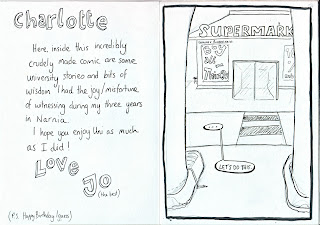 Charlotte
Here, inside this incredibly
crudely made comic are some
university stories and bits of
wisdom I had the joy/misfortune
of witnessing during my three years
in Narnia.
I hope you enjoy the as much
as I did!
Love
Jo
(the best)
(P.S. Happy Birthday (guess)
SUPERMARK
Buy
...
LET'S DO THIS